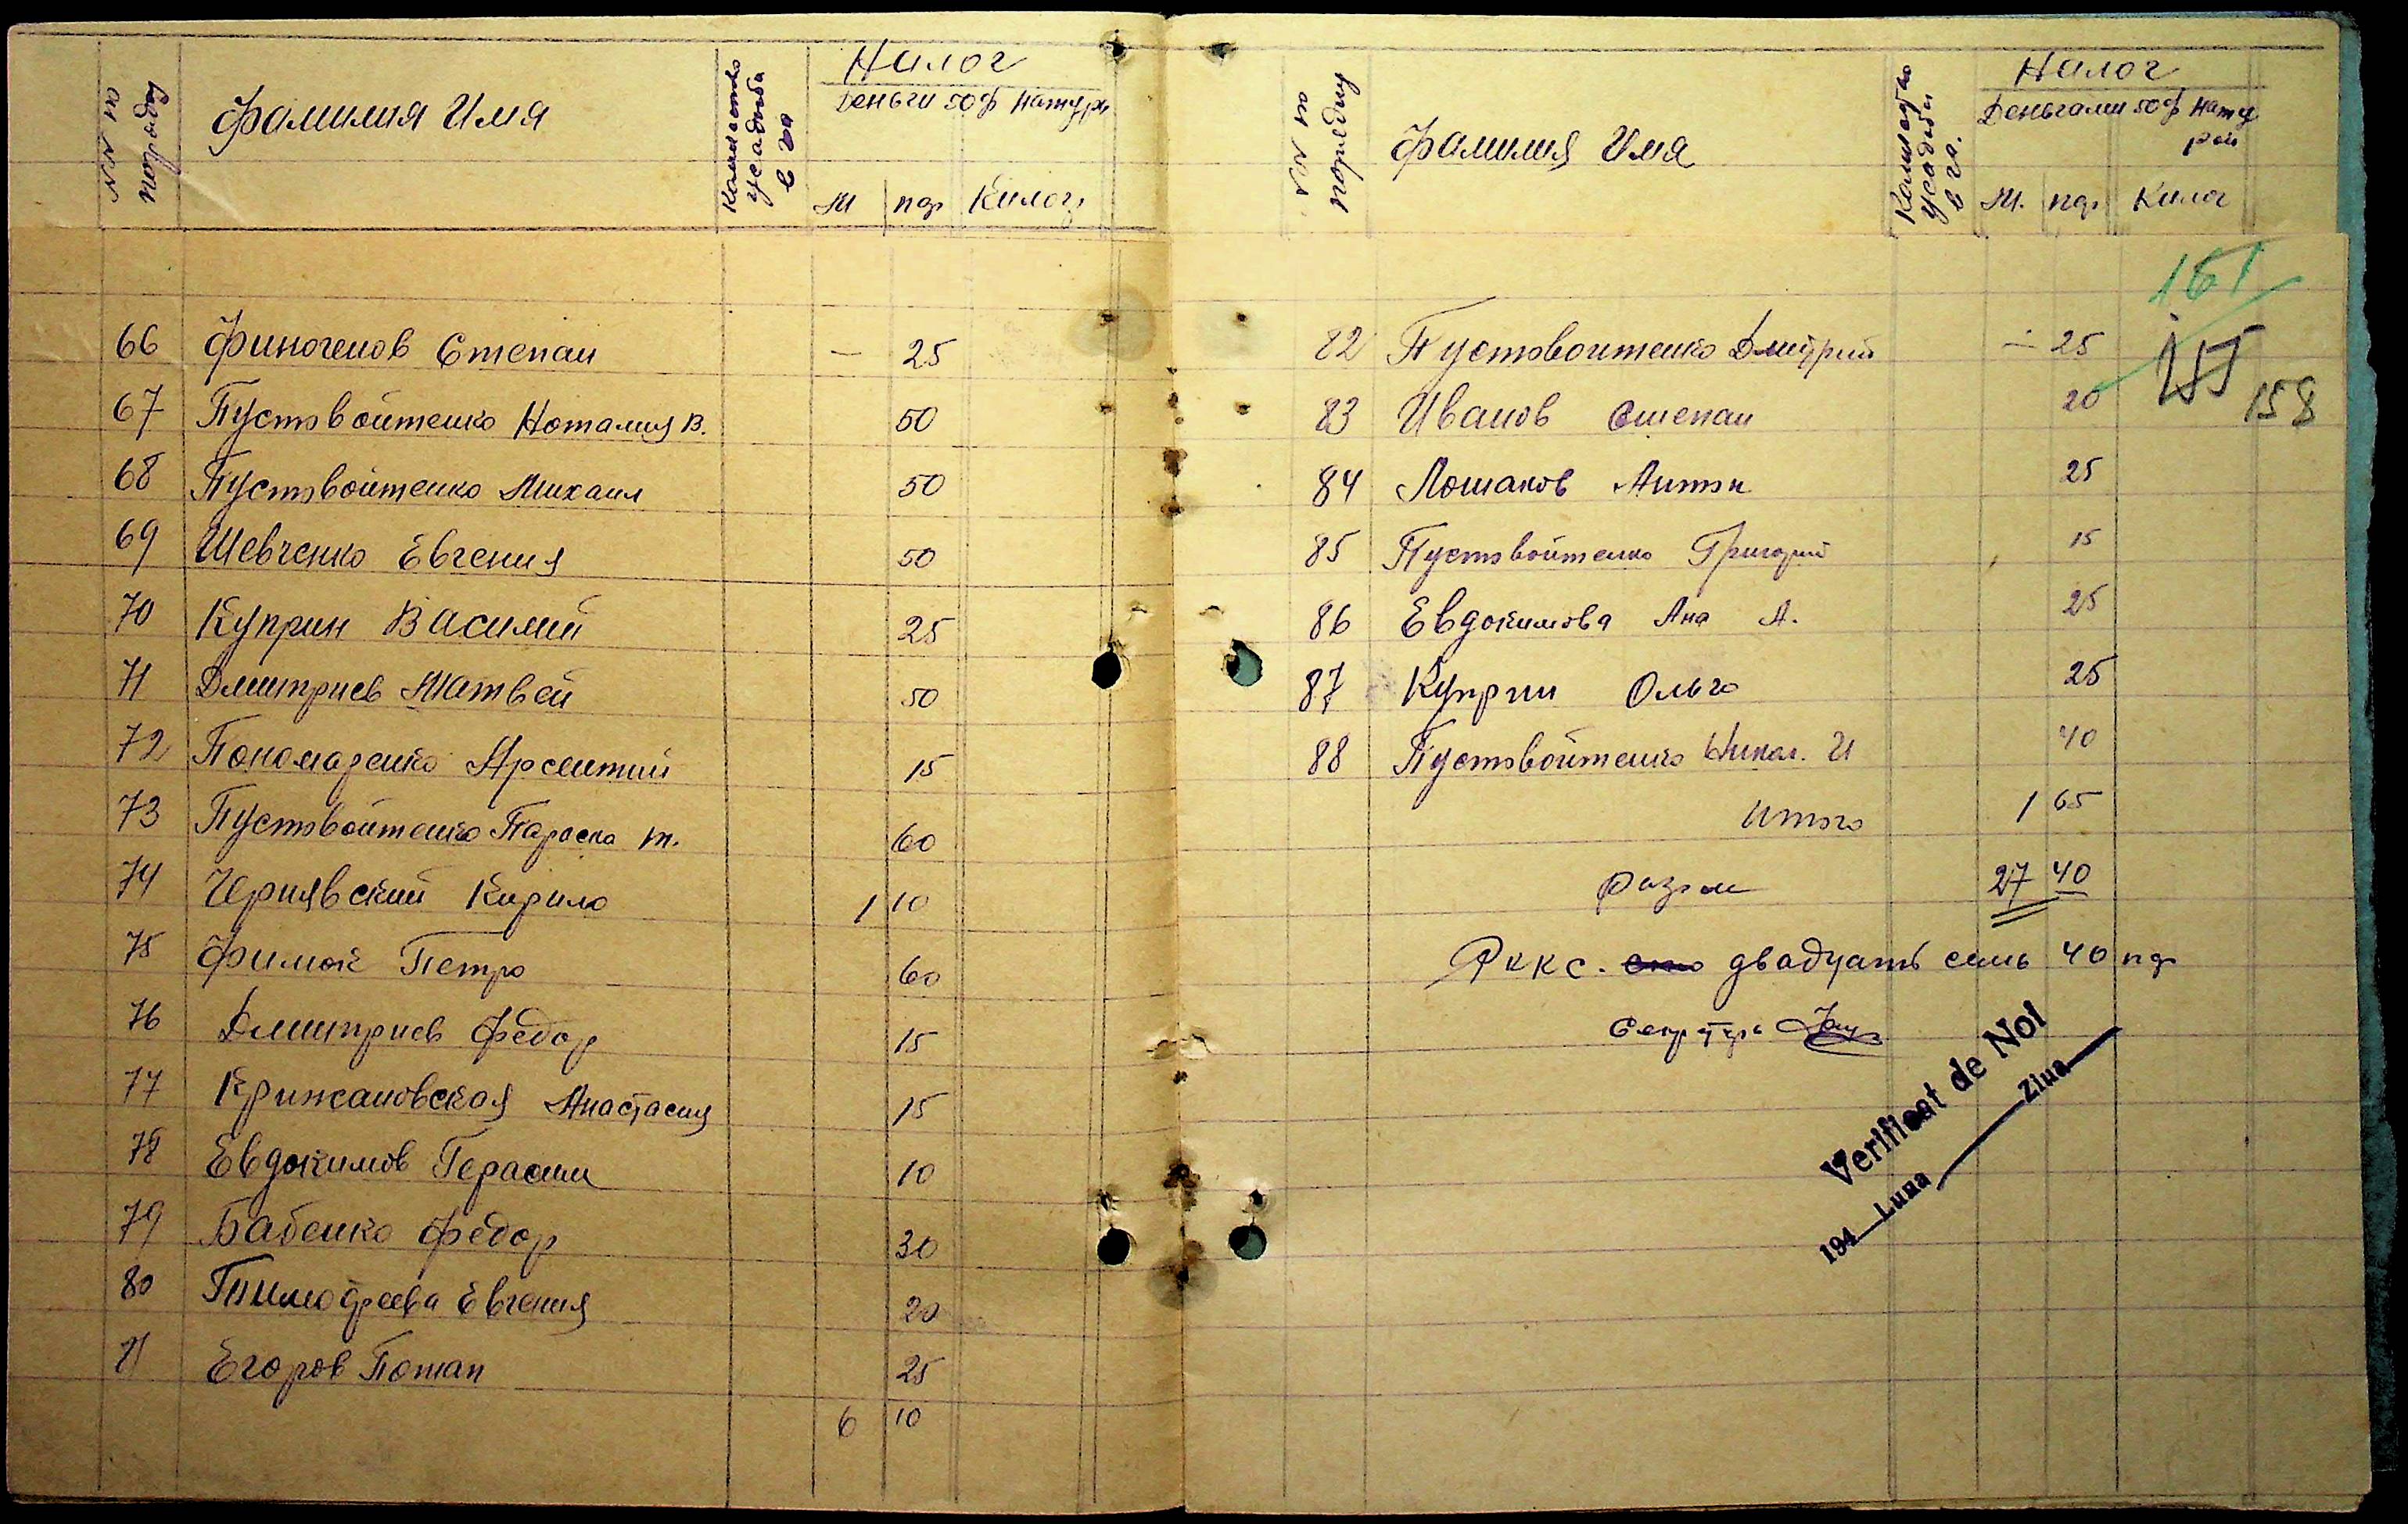 №№ по порядку
Фамилия Имя
Количество усадьба в га
Налог
Деньги 50ф Натур.
М пф Килог.
66 Финогенов Степан — 25
67 ПустовойтенкоНоталия В. 50
68 Пустовойтенко Михаил 50
69 Шевченко Евгения 50
70 Куприн Василий 25
71 Дмитриев Матвей 50
72 Пономаренко Арсентий 15
73 Пустовойтенко Пароска т. 60
74 Чернявский Кирило 1 10
75 Фимок Петро 60
76 Дмитриев Федор 15
77 Крижановская Анастасия 15
78 Евдокимов Герасим 10
79 Бабенко Федор 30
80 Тимофеева Евгения 20
81 Егоров Потап 25
6 10
№№ по порядку
Фамилия Имя
Количество усадьбы в га.
Налог
Деньгами 50ф Натурой
М. пф Килог
161
158
82 Пустовойтенко Дмитрий — 25
83 Иванов Степан 20
84 Лошаков Антон 25
85 Пустовойтенко Григорий 15
86 Евдокимова Ана А. 25
87 Куприн Ольго 25
88 Пустовойтенко Никол. И 40
Итого 1 65
Разом 27 40
Рккс. двадцать семь 40 пф
Секретарь
Verificat de Noi
194 Luna Ziua